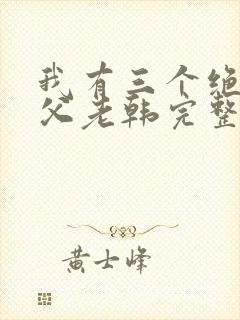 我有三个绝
父老韩完整
黄士峰